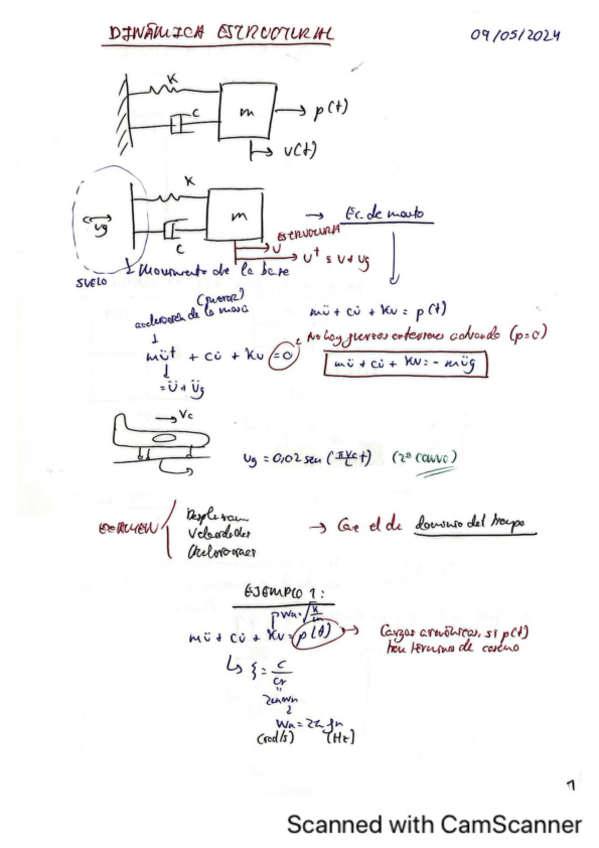 DINÁMICA ESTRUCTURAL
09/05/2024
K
C
m
p(t)
v(t)
K
C
m
ug
SUELO
Movimiento de la base
ESTRUCTURA
u
u^t = u + ug
→ Ec. de movto
mü + cu̇ + Ku = p(t)
aceleración de la masa
No hay fuerzas exteriores actuando (p=0)
müt + cu̇ + Ku = 0
= ü + üg
mü + cu̇ + Ku = - müg
Vc
ug = 0,02 sen (πVc/L t) (2º cauro)
EXAMEN
Desplazam
Velocidades
Aceleraciones
→ Cae el de dominio del tiempo
EJEMPLO 1:
Wn = √K/m
mü + cu̇ + Ku = p(t) →
Cargas armónicas, si p(t)
hay término de coseno
↳ ξ = c/cr
2mwn
Wn = 2π fn
(rad/s) (Hz)
1
Scanned with CamScanner